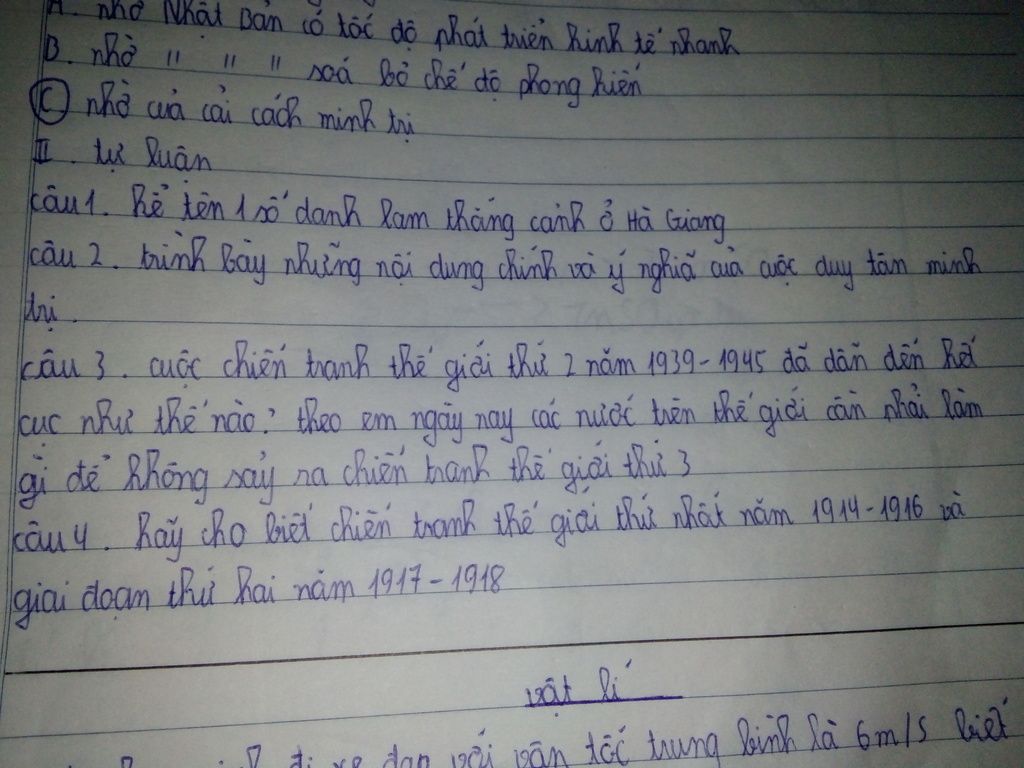 A. nhờ Nhật Bản có tốc độ phát triển kinh tế nhanh
B. nhờ " " " xoá bỏ chế độ phong kiến
C nhờ cuả cải cách minh trị
II. tự luận
câu 1. kể tên 1 số danh lam thắng cảnh ở Hà Giang
câu 2. trình bày những nội dung chính và ý nghiã cuả cuộc duy tân minh
trị.
câu 3. cuộc chiến tranh thế giới thứ 2 năm 1939-1945 đã dẫn đến kết
cục như thế nào? theo em ngày nay các nước trên thế giới cần phải làm
gì để không sảy ra chiến tranh thế giới thứ 3
câu 4. hãy cho biết chiến tranh thế giới thứ nhất năm 1914-1916 và
giai đoạn thứ hai năm 1917-1918
vật lí
đi xe đạp với vận tốc trung bình là 6m/s biết